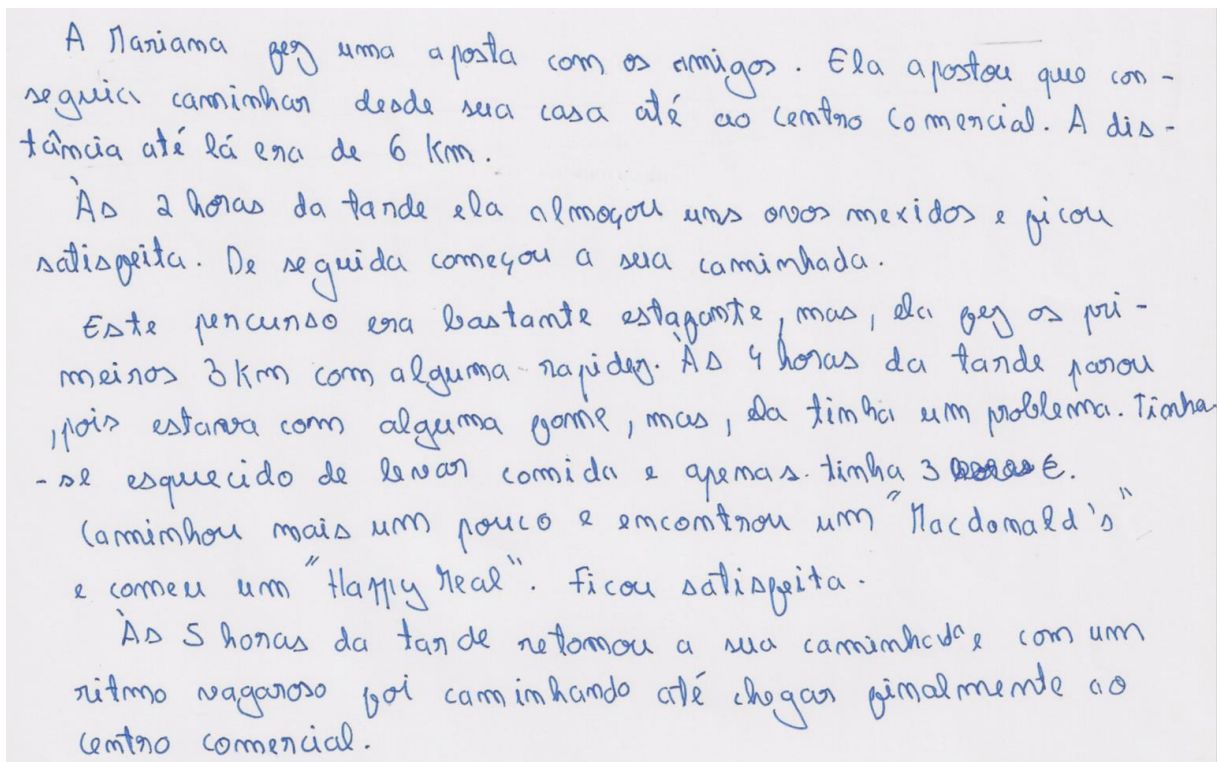 A Mariana fez uma aposta com os amigos. Ela apostou que con-
seguia caminhar desde sua casa até ao centro comercial. A dis-
tância até lá era de 6 km.
Às 2 horas da tarde ela almoçou uns ovos mexidos e ficou
satisfeita. De seguida começou a sua caminhada.
Este percurso era bastante estafante, mas, ela fez os pri-
meiros 3 km com alguma rapidez. Às 4 horas da tarde parou
, pois estava com alguma fome, mas, ela tinha um problema. Tinha-
-se esquecido de levar comida e apenas tinha 3 €.
Caminhou mais um pouco e encontrou um "Macdonald's"
e comeu um "Happy Meal". Ficou satisfeita.
Às 5 horas da tarde retomou a sua caminhada e com um
ritmo vagaroso foi caminhando até chegar finalmente ao
centro comercial.